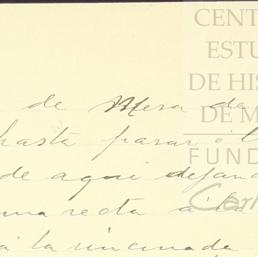 CENT
ESTU
DE HIS
DE M
FUND
Car
de Mesa de
hasta parar á l
de aqui dejand
una recta á la
á la rinconada